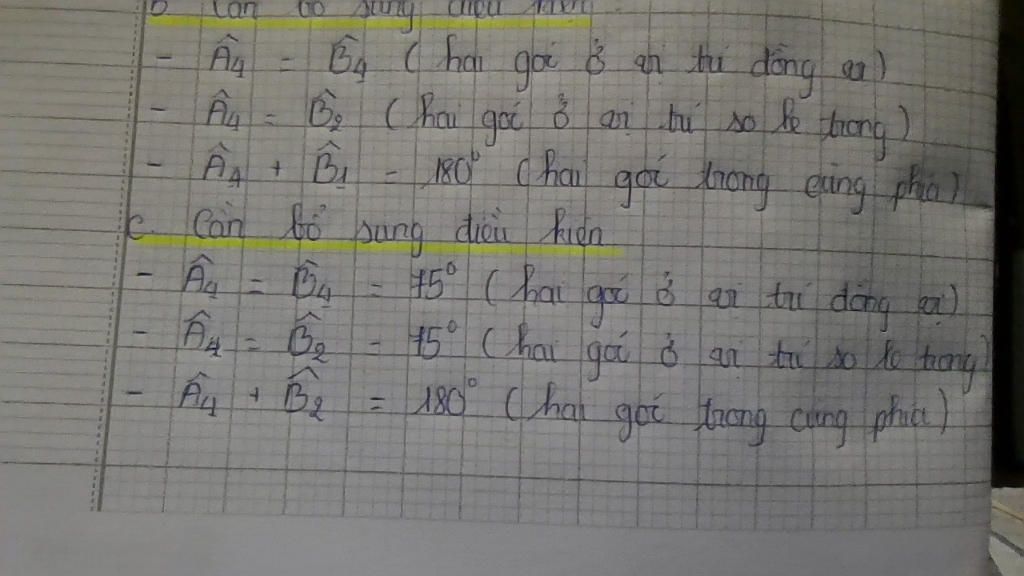 b Cần bổ sung điều kiện
- Â₄ = B̂₄ ( hai góc ở vị trí đồng vị)
- Â₄ = B̂₂ ( hai góc ở vị trí so le trong)
- Â₄ + B̂₁ = 180° ( hai góc trong cùng phía)
c. Cần bổ sung điều kiện
- Â₄ = B̂₄ = 75° ( hai góc ở vị trí đồng vị)
- Â₄ = B̂₂ = 75° ( hai góc ở vị trí so le trong)
- Â₄ + B̂₂ = 180° ( hai góc trong cùng phía)